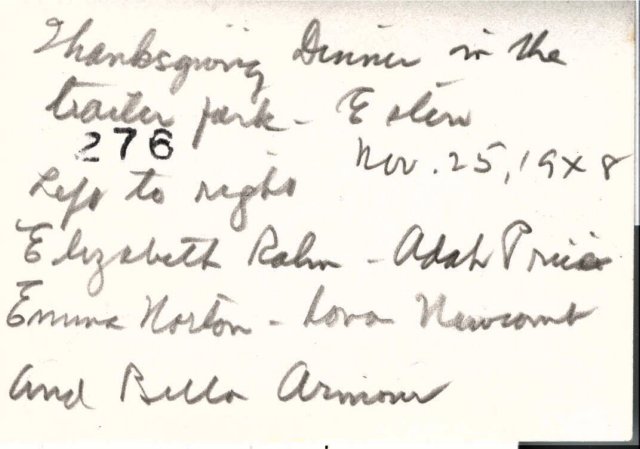 Thanksgiving Dinner in the
trailer park - Estero
276
Nov. 25, 1948
Left to right
Elizabeth Rahn - Adah Price
Emma Norton - Lova Newcomb
and Bella Armour